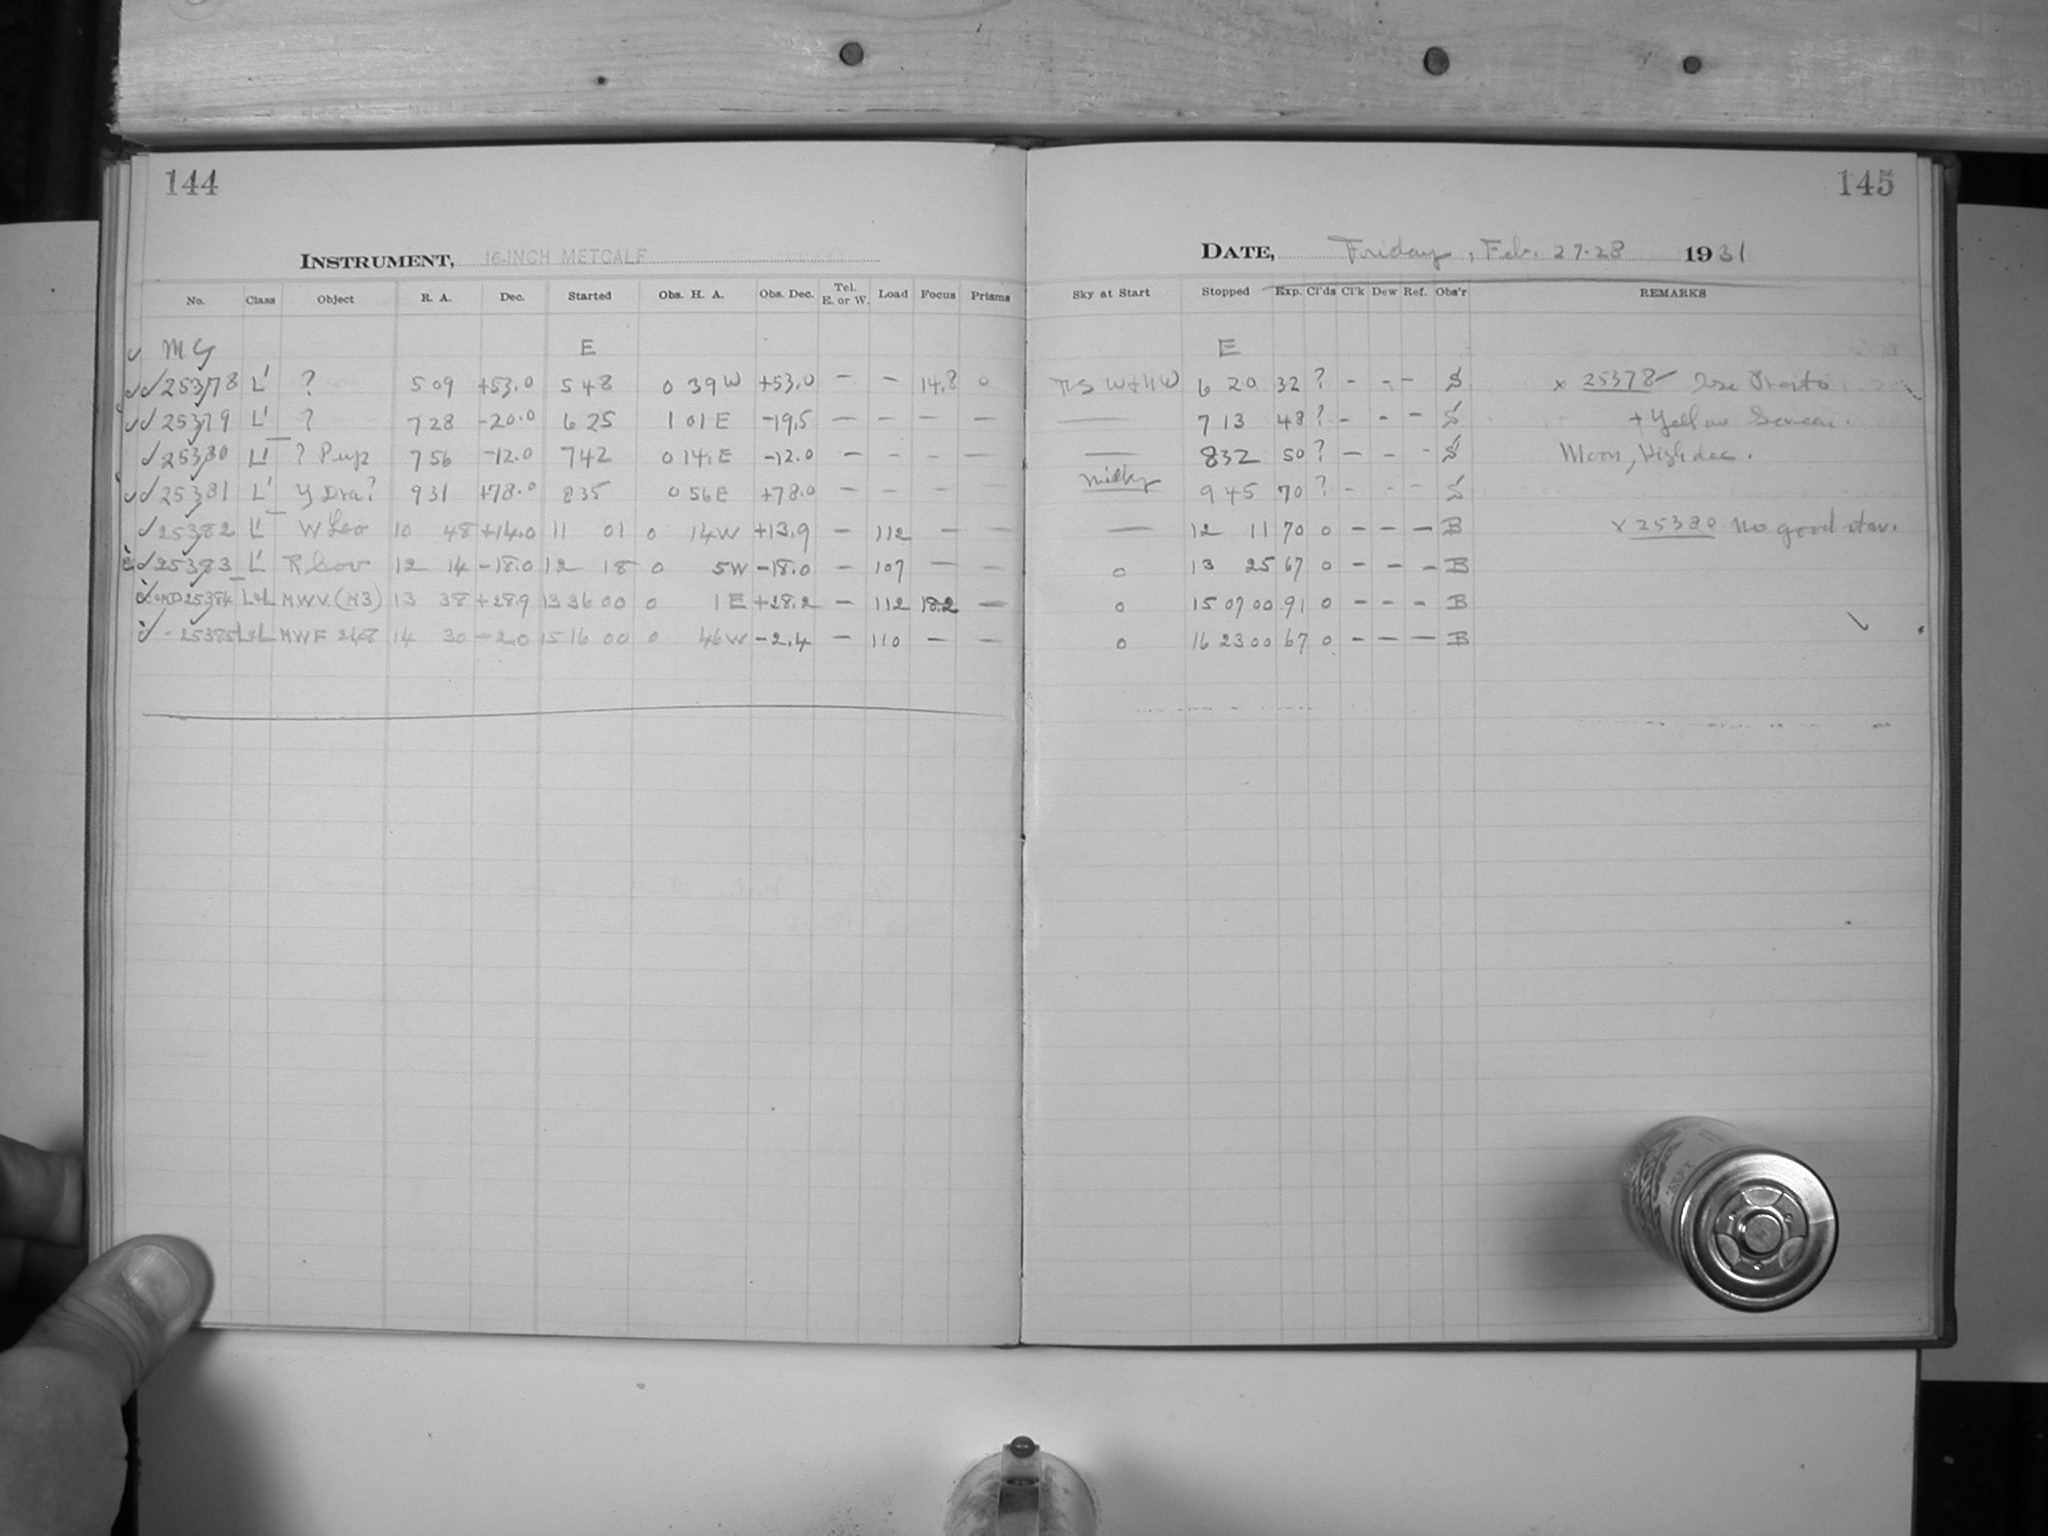 144
INSTRUMENT, 16-INCH METCALF
No. Class Object R. A. Dec. Started Obs. H. A. Obs. Dec. Tel. E. or W. Load Focus Prisms
E
25378 L' ? 5 09 +53.0 5 48 0 39 W +53.0 — — 14.8 0
25379 L' ? 7 28 -20.0 6 25 1 01 E -19.5 — — — —
25380 L' ? Pup 7 56 -12.0 7 42 0 14 E -12.0 — — — —
25381 L' Y Dra? 9 31 +78.0 8 35 0 56 E +78.0 — — — —
25382 L' W Leo 10 48 +14.0 11 01 0 14 W +13.9 — 112 — —
25383 L' R Corv 12 14 -18.0 12 18 0 5 W -18.0 — 107 — —
25384 MWV. (M3) 13 38 +28.9 13 36 00 0 1 E +28.2 — 112 18.2 —
25385 MWF 14 30 -2.0 15 16 00 0 46 W -2.4 — 110 — —
145
DATE, Friday, Feb. 27-28 1931
Sky at Start Stopped Exp. Cl'ds Cl'k Dew Ref. Obs'r REMARKS
E
6 20 32 ? - - - S x 25378
— 7 13 48 ? - - - S + Yellow Screen.
— 8 32 50 ? — - - S Moon, High dec.
Milky 9 45 70 ? - - - S
— 12 11 70 0 — — — B x 25380 No good star.
0 13 25 67 0 — — — B
0 15 07 00 91 0 — — — B
0 16 23 00 67 0 — — — B